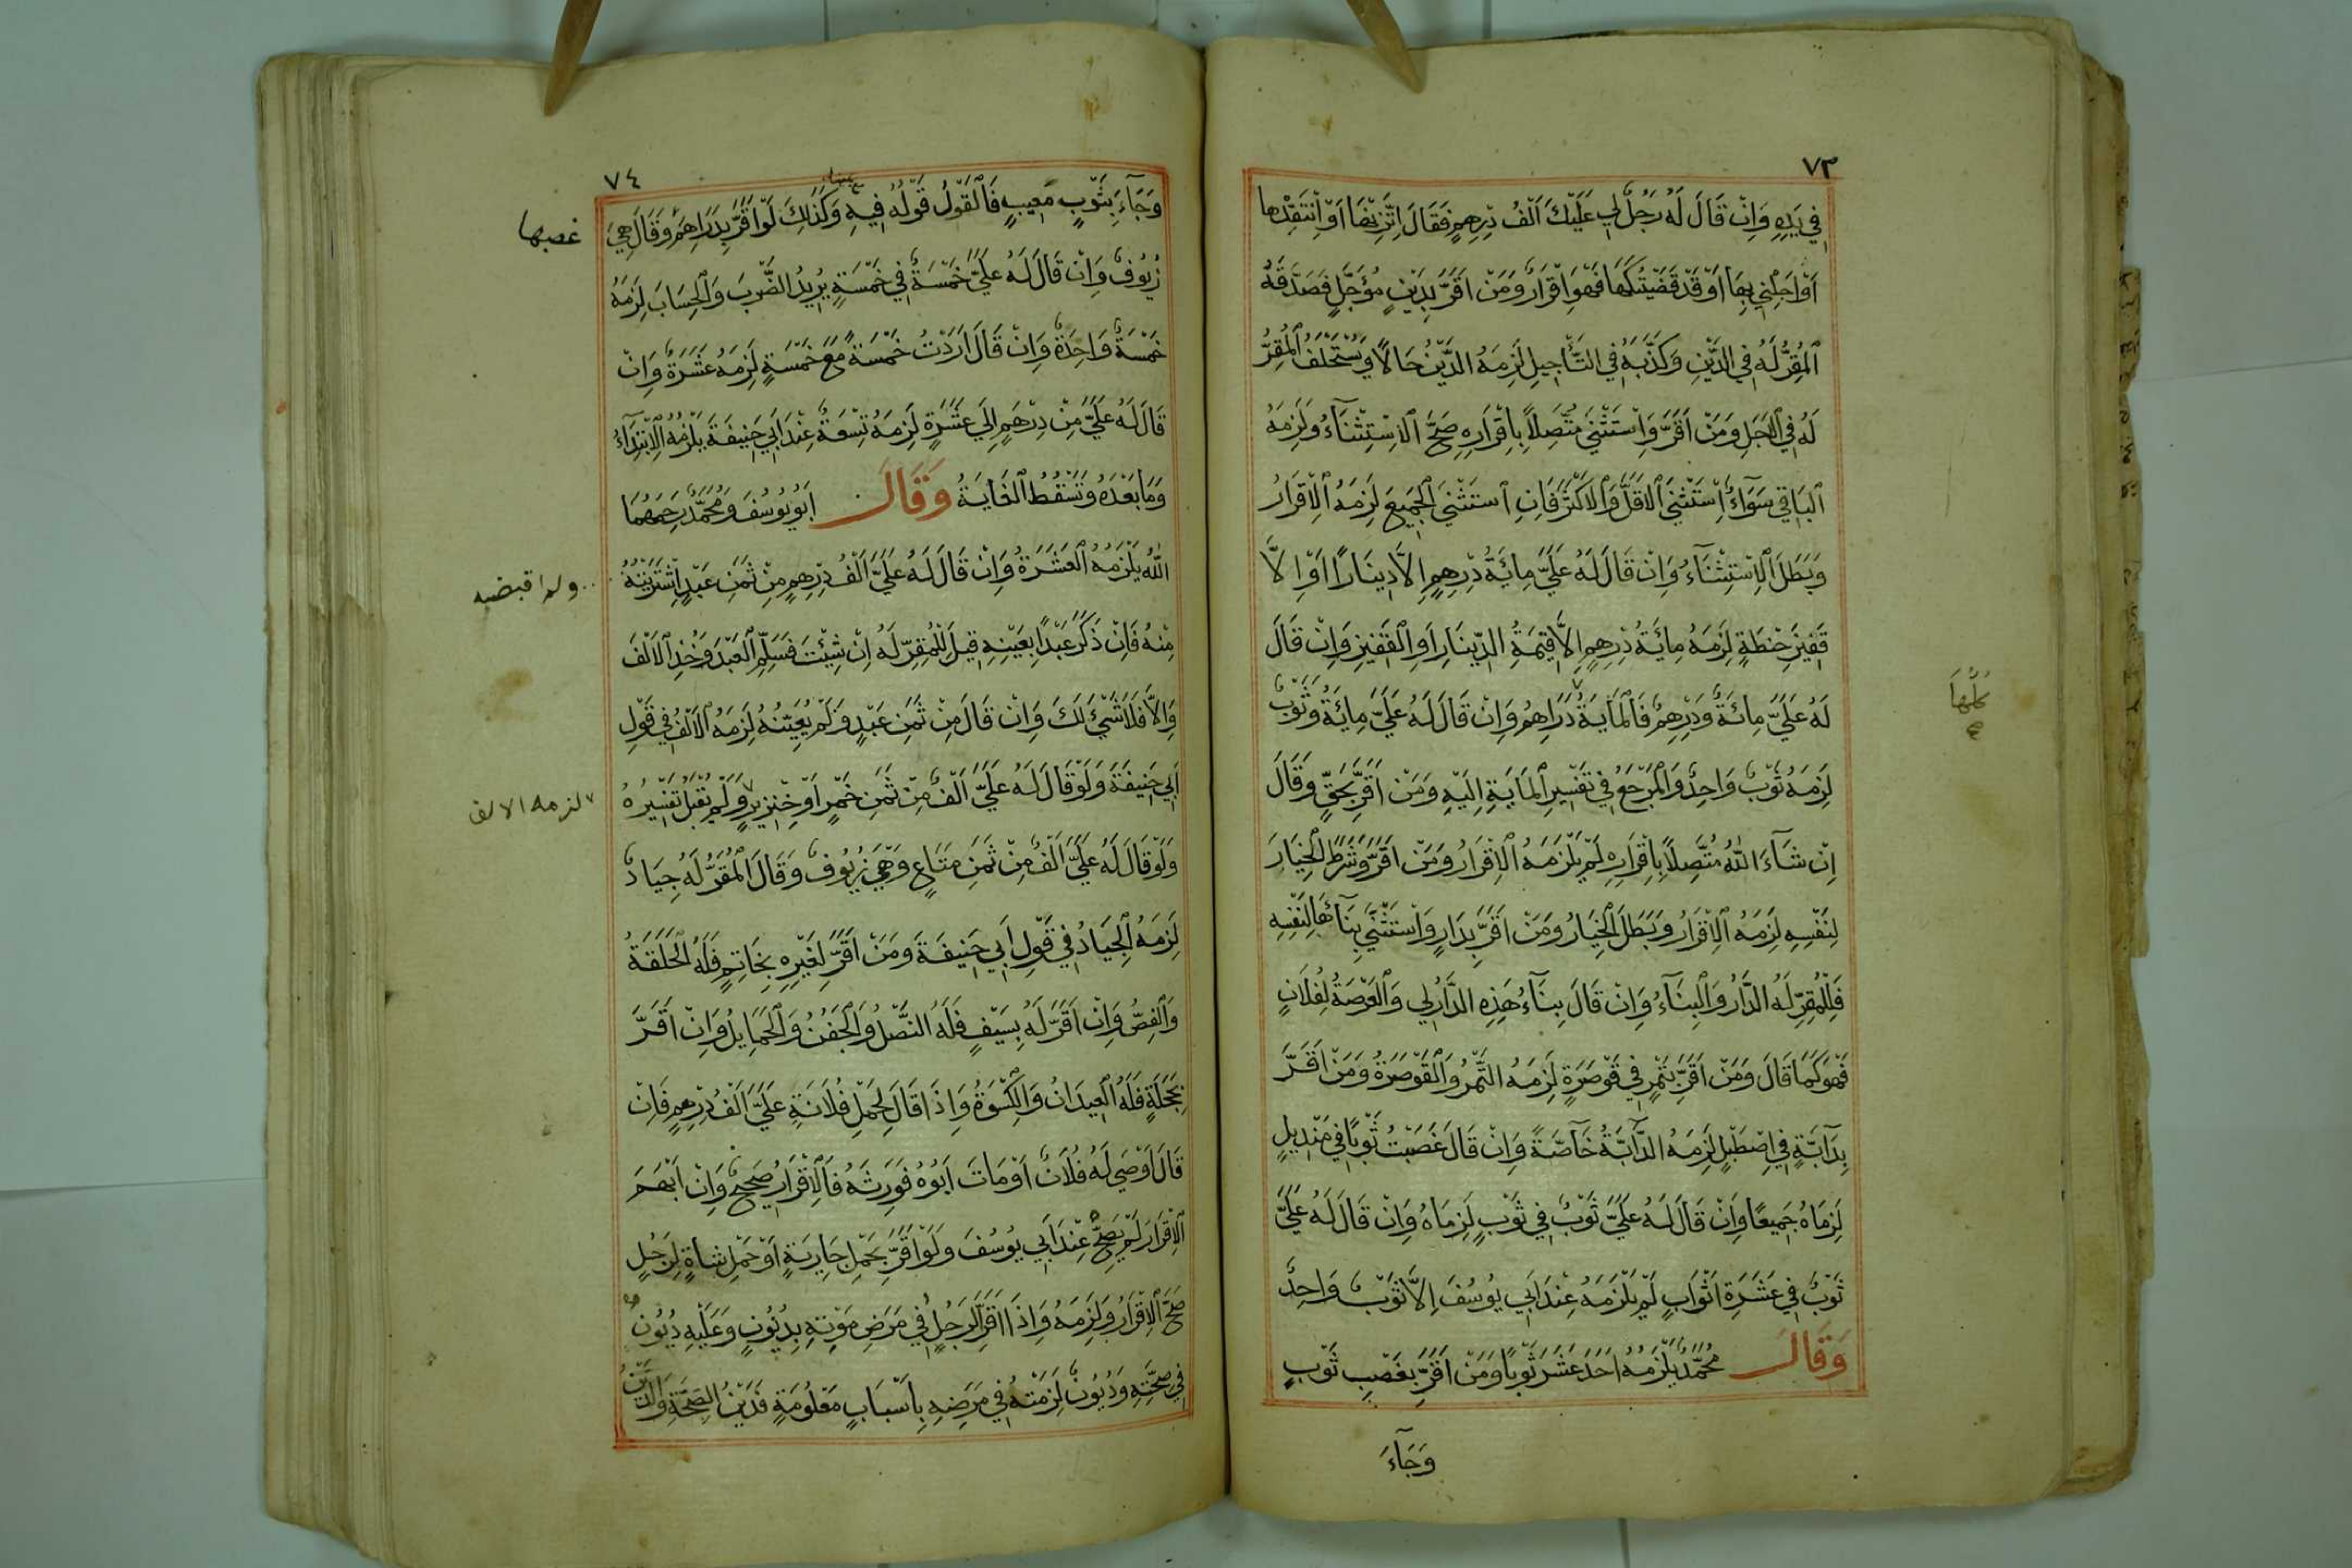 ٧٣
فِي يَدِهِ وَاِنْ قَالَ لَهُ رَجُلٌ لِي عَلَيْكَ اَلْفُ دِرْهِمٍ فَقَالَ اِتَّزِنْهَا اَوْ اِنْتَقِدْهَا
اَوْ اَجِّلْنِي بِهَا اَوْ قَدْ قَضَيْتُكَهَا فَهُوَ اِقْرَارٌ وَمَنْ اَقَرَّ بِدَيْنٍ مُؤَجَّلٍ فَصَدَّقَهُ
اَلْمُقِرُّ لَهُ فِي الدَّيْنِ وَكَذَّبَهُ فِي التَّأْجِيلِ لَزِمَهُ الدَّيْنُ حَالًا وَيُسْتَحْلَفُ اَلْمُقِرُّ
لَهُ فِي الْاَجَلِ وَمَنْ اَقَرَّ وَاسْتَثْنَي مُتَّصِلاً بِاِقْرَارِهِ صَحَّ الْاِسْتِثْنَآءُ وَلَزِمَهُ
اَلْبَاقِي سَوَآءٌ اِسْتَثْنَي الْاَقَلَّ وَالْاَكْثَرَ فَاِنِ اسْتَثْنَي الْجَمِيعَ لَزِمَهُ الْاِقْرَارُ
وَبَطَلَ الْاِسْتِثْنَآءُ وَاِنْ قَالَ لَهُ عَلَيَّ مِائَةُ دِرْهِمٍ اِلاَّ دِينَارًا اَوْ اِلَّا
قَفِيزَ حِنْطَةٍ لَزِمَهُ مِائَةُ دِرْهِمٍ اِلاَّ قِيمَةُ الدِّينَارِ اَوِ الْقَفِيزِ وَاِنْ قَالَ
لَهُ عَلَيَّ مِائَةٌ وَدِرْهِمٌ فَالْمَايَةُ دَرَاهِمُ وَاِنْ قَالَ لَهُ عَلَيَّ مِايَةٌ وَثَوْبٌ
كُلُّهَا
لَزِمَهُ ثَوْبٌ وَاحِدٌ وَالْمَرْجَعُ فِي تَفْسِيرِ الْمَايَةِ اِلَيْهِ وَمَنْ اَقَرَّ بِحَقٍّ وَقَالَ
اِنْ شَآءَ اللّٰهُ مُتَّصِلاً بِاِقْرَارِهِ لَمْ يَلْزَمْهُ الْاِقْرَارُ وَمَنْ اَقَرَّ وَشَرَطَ الْخِيَارَ
لِنَفْسِهِ لَزِمَهُ الْاِقْرَارُ وَبَطَلَ الْخِيَارُ وَمَنْ اَقَرَّ بِدَارٍ وَاسْتَثْنَي بِنَآئَهَا لِنَفْسِهِ
فَلِلْمُقِرِّ لَهُ الدَّارُ وَالْبِنَآءُ وَاِنْ قَالَ بِنَآءُ هَذِهِ الدَّارِ لِي وَالْعَرْصَةُ لِفُلَانٍ
فَهُوَ كَمَا قَالَ وَمَنْ اَقَرَّ بِتَمْرٍ فِي قَوْصَرَةٍ لَزِمَهُ التَّمْرُ وَالْقَوْصَرَةُ وَمَنْ اَقَرَّ
بِدَآبَّةٍ فِي اِصْطَبْلٍ لَزِمَهُ الدَّآبَّةُ خَآصَّةً وَاِنْ قَالَ غَصَبْتُ ثَوْبًا فِي مَنْدِيلٍ
لَزِمَاهُ جَمِيعًا وَاِنْ قَالَ لَهُ عَلَيَّ ثَوْبٌ فِي ثَوْبٍ لَزِمَاهُ وَاِنْ قَالَ لَهُ عَلَيَّ
ثَوْبٌ فِي عَشَرَةِ اَثْوَابٍ لَمْ يَلْزَمْهُ عِنْدَ اَبِي يُوسُفَ اِلاَّ ثَوْبٌ وَاحِدٌ
وَقَالَ مُحَمَّدٌ يَلْزَمُهُ اَحَدَ عَشَرَ ثَوْبًا وَمَنْ اَقَرَّ بِغَصْبِ ثَوْبٍ
وَجَآءَ
٧٤
وَجَآءَ بِثَوْبٍ مَعِيبٍ فَالْقَوْلُ قَوْلُهُ فِيهِ وَكَذَلِكَ لَوْ اَقَرَّ بِدَرَاهِمَ وَقَالَ هِيَ
غصبها
زُيُوفٌ وَاِنْ قَالَ لَهُ عَلَيَّ خَمْسَةٌ فِي خَمْسَةٍ يُرِيدُ الضَّرْبَ وَالْحِسَابَ لَزِمَهُ
خَمْسَةٌ وَاحِدَةٌ وَاِنْ قَالَ اَرَدْتُ خَمْسَةً مَعَ خَمْسَةٍ لَزِمَهُ عَشَرَةٌ وَاِنْ
قَالَ لَهُ عَلَيَّ مِنْ دِرْهَمٍ اِلَي عَشَرَةٍ لَزِمَهُ تِسْعَةٌ عِنْدَ اَبِي حَنِيفَةَ يَلْزَمُهُ الْاِبْتِدَآءُ
وَمَا بَعْدَهُ وَتَسْقُطُ الْغَايَةُ وَقَالَ اَبُو يُوسُفَ وَمُحَمَّدٌ رَحِمَهُمَا
اللّٰهُ يَلْزَمُهُ الْعَشَرَةُ وَاِنْ قَالَ لَهُ عَلَيَّ اَلْفُ دِرْهِمٍ مِنْ ثَمَنِ عَبْدٍ اِشْتَرَيْتُهُ
ولم اقبضه
مِنْهُ فَاِنْ ذَكَرَ عَبْدًا بِعَيْنِهِ قِيلَ لِلْمُقِرِّ لَهُ اِنْ شِئْتَ فَسَلِّمِ الْعَبْدَ وَخُذِ الْاَلْفَ
وَاِلاَّ فَلَا شَيْئَ لَكَ وَاِنْ قَالَ مِنْ ثَمَنِ عَبْدٍ وَلَمْ يُعَيِّنْهُ لَزِمَهُ الْاَلْفُ فِي قَوْلِ
اَبِي حَنِيفَةَ وَلَوْ قَالَ لَهُ عَلَيَّ اَلْفٌ مِنْ ثَمَنِ خَمْرٍ اَوْ خِنْزِيرٍ وَلَمْ تُقْبَلْ تَفْسِيرُهُ
لزمه الالف
وَلَوْ قَالَ لَهُ عَلَيَّ اَلْفٌ مِنْ ثَمَنِ مَتَاعٍ وَهِيَ زُيُوفٌ وَقَالَ الْمُقَرُّ لَهُ جِيَادٌ
لَزِمَهُ الْجِيَادُ فِي قَوْلِ اَبِي حَنِيفَةَ وَمَنْ اَقَرَّ لِغَيْرِهِ بِخَاتِمٍ فَلَهُ الْحَلَقَةُ
وَالْفِصُّ وَاِنْ اَقَرَّ لَهُ بِسَيْفٍ فَلَهُ النَّصْلُ وَالْجَفْنُ وَالْحَمَايِلُ وَاِنْ اَقَرَّ
بِحَجَلَةٍ فَلَهُ الْعِيدَانُ وَالْكِسْوَةُ وَاِذَا قَالَ لِحَمْلِ فُلَانَةٍ عَلَيَّ اَلْفُ دِرْهِمٍ فَاِنْ
قَالَ اَوْصَي لَهُ فُلَانٌ اَوْ مَاتَ اَبُوهُ فَوَرِثَهُ فَالْاِقْرَارُ صَحِيحٌ وَاِنْ اَبْهَمَ
الْاِقْرَارَ لَمْ يَصِحَّ عِنْدَ اَبِي يُوسُفَ وَلَوْ اَقَرَّ بِحَمْلِ جَارِيَةٍ اَوْ حَمْلِ شَاةٍ لِرَجُلٍ
صَحَّ الْاِقْرَارُ وَلَزِمَهُ وَاِذَا اَقَرَّ الرَّجُلُ فِي مَرَضِ مَوْتِهِ بِدُيُونٍ وَعَلَيْهِ دُيُونٌ
فِي صِحَّتِهِ وَدُيُونٌ لَزِمَتْهُ فِي مَرَضِهِ بِاَسْبَابٍ مَعْلُومَةٍ فَدَيْنُ الصِّحَّةِ وَالدَّيْنُ